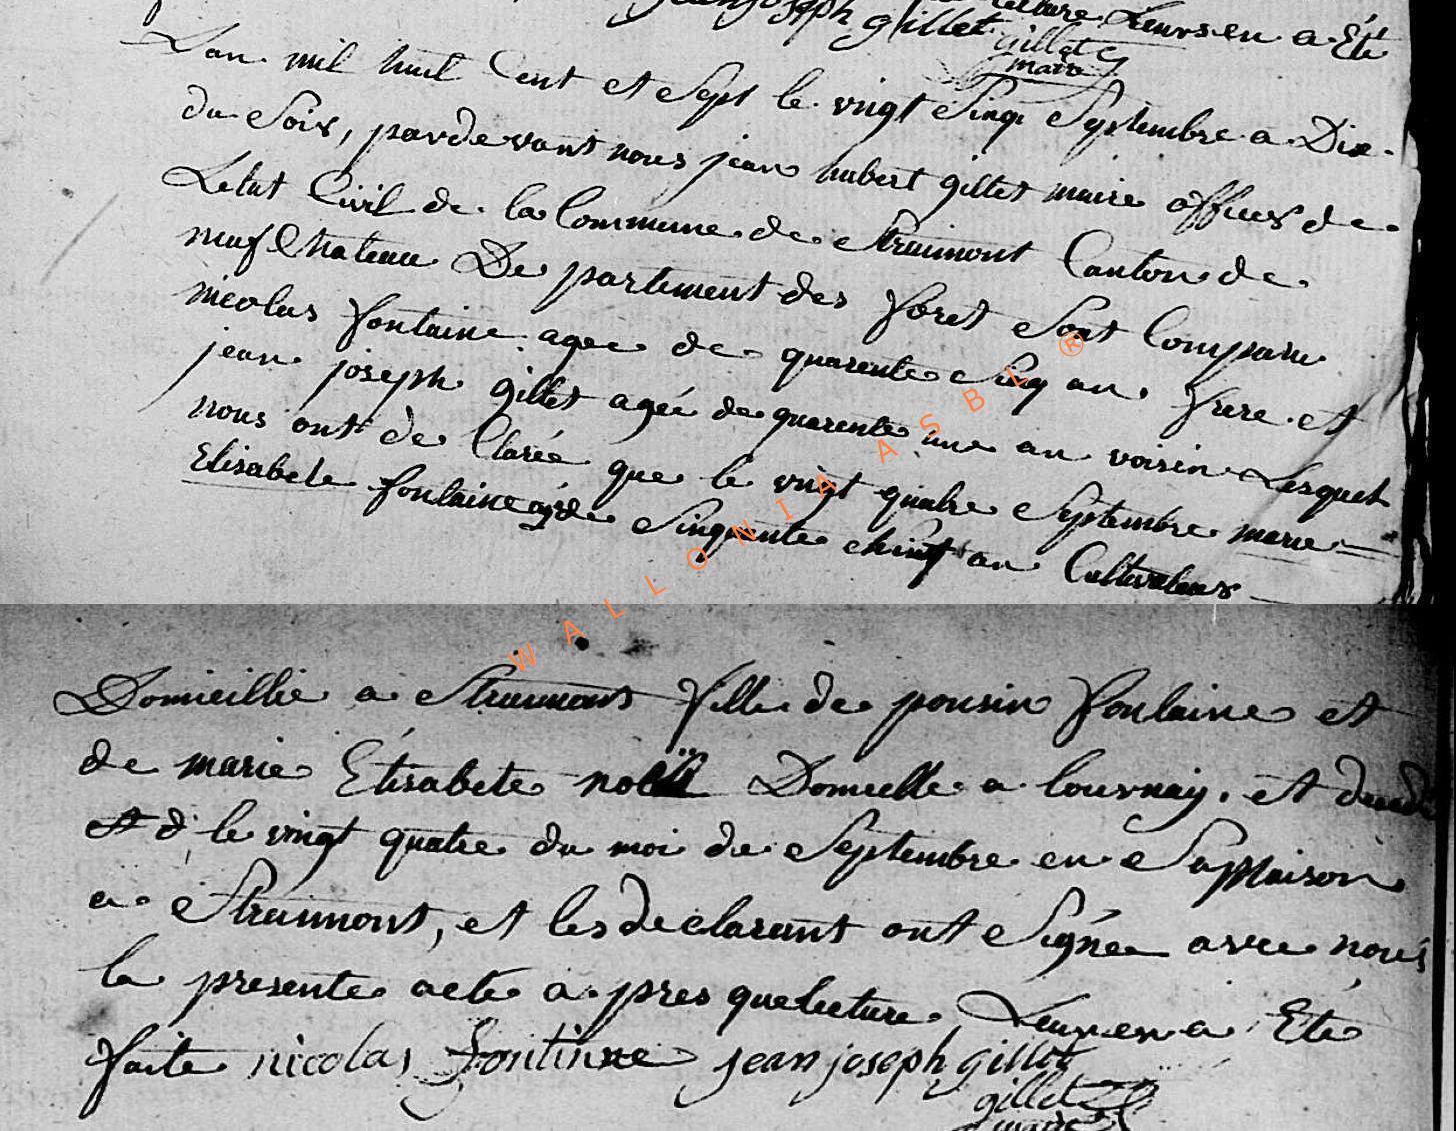 lecture Leursen a Eté
jean joseph gillet
gillet
maire
Lan mil huit Cent et Sept le vingt Sinq Septembre a Dix
du Soir, pardevant nous jean hubert gillet maire officer de
Letat Civil de la Commune de Straimont Canton de
neufChateau De partement des foret Sont Comparu
nicolas fontaine agee de quarente Sinq an frere et
jean joseph gillet agée de quarente une an voisin Lesquel
nous ont de Clarée que le vingt quatre Septembre marie
Elisabete fontaine agé de Sinquente an Cultivateur
WALLONIA ASBL ®
Domicillie a Straimont fille de ponsin fontaine et
de marie Elisabete Domicille a tournay, et
et d le vingt quatre du moi de Septembre en Sa Maison
a Straimont, et les declarant ont Signée avec nous
la presente acte a pres que lecture Leursen a Eté
faite nicolas fontinne jean joseph gillet
gillet
maire